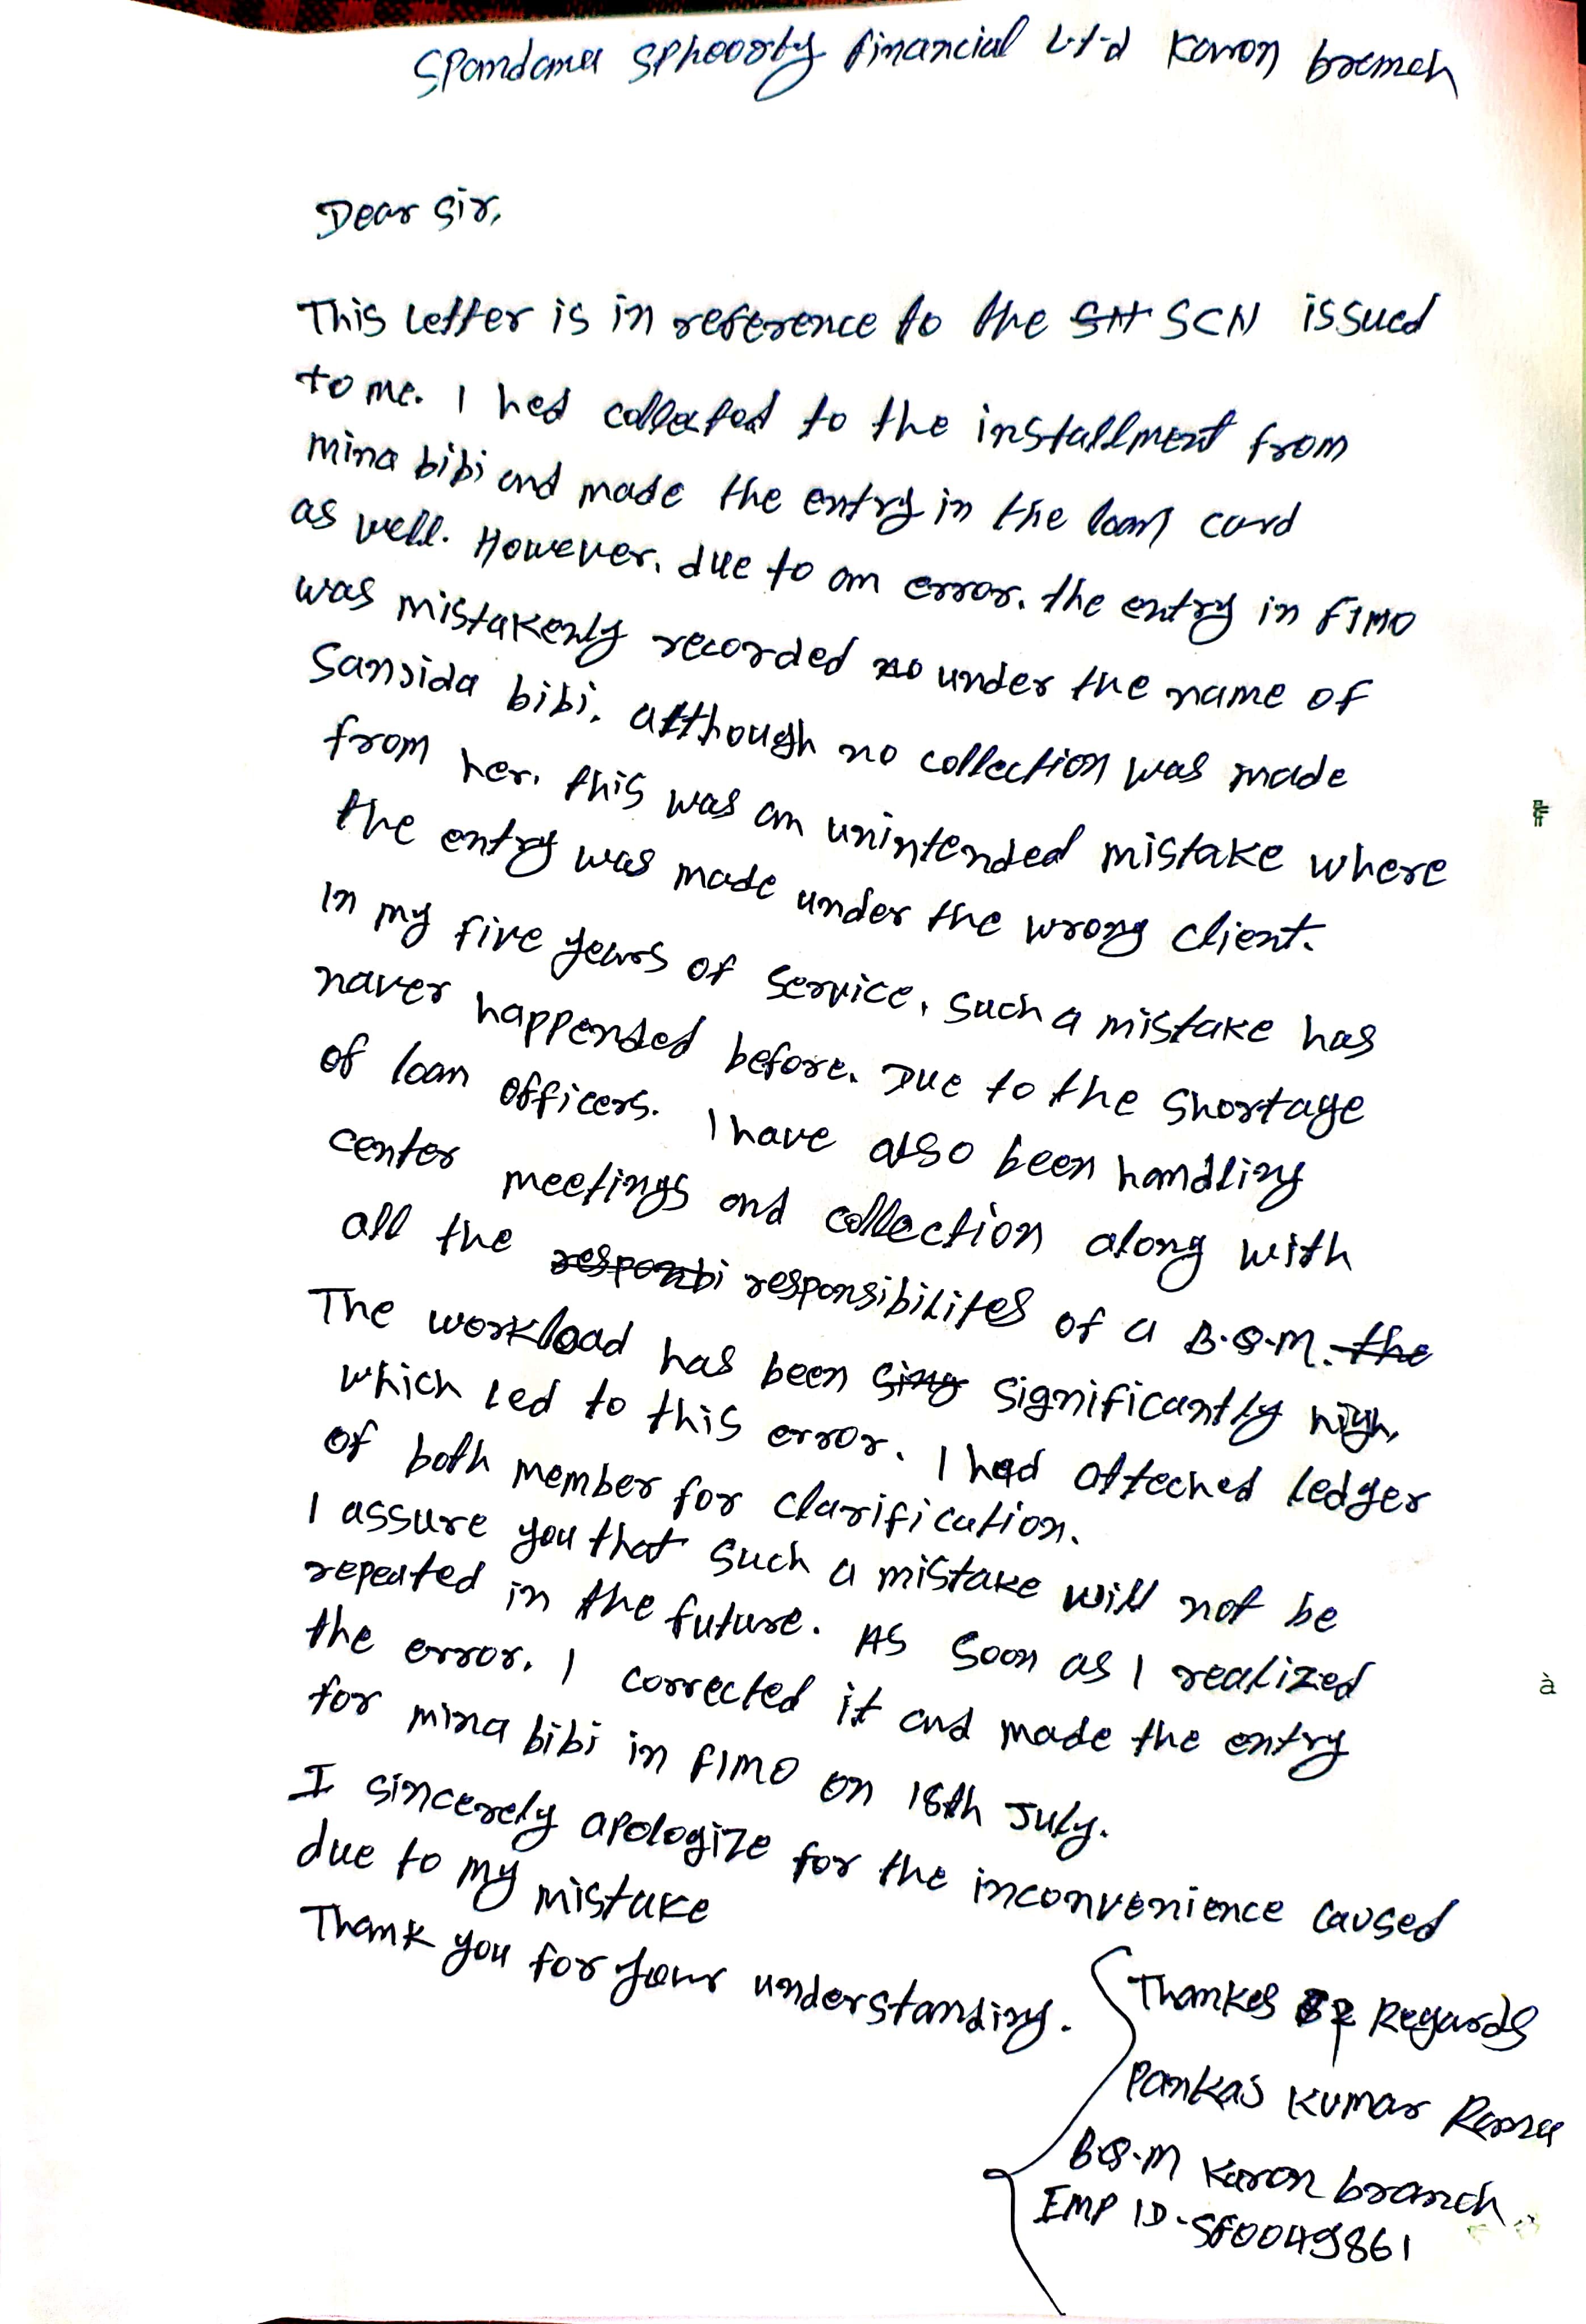 Spandana Sphoorty financial Ltd Karon branch
Dear Sir,
This Letter is in reference to the SCN issued
to me. I hed collected to the installment from
mina bibi and made the entry in the loan card
as well. However, due to an error, the entry in FIMO
was mistakenly recorded under the name of
Sanjida bibi, although no collection was made
from her, this was an unintended mistake where
the entry was made under the wrong client.
In my five years of service, such a mistake has
naver happended before. Due to the shortage
of loan officers. I have also been handling
center meetings and collection along with
all the responsibilites of a B.Q.M.
The workload has been significantly high,
which led to this error. I had atteched ledger
of both member for clarification.
I assure you that such a mistake will not be
repeated in the future. As soon as I realized
the error, I corrected it and made the entry
for mina bibi in FIMO on 18th July.
I sincerely apologize for the inconvenience caused
due to my mistake
Thank you for your understanding.
Thankes & Regards
Pankaj Kumar
B.Q.M Karon branch
EMP ID-SF0049861